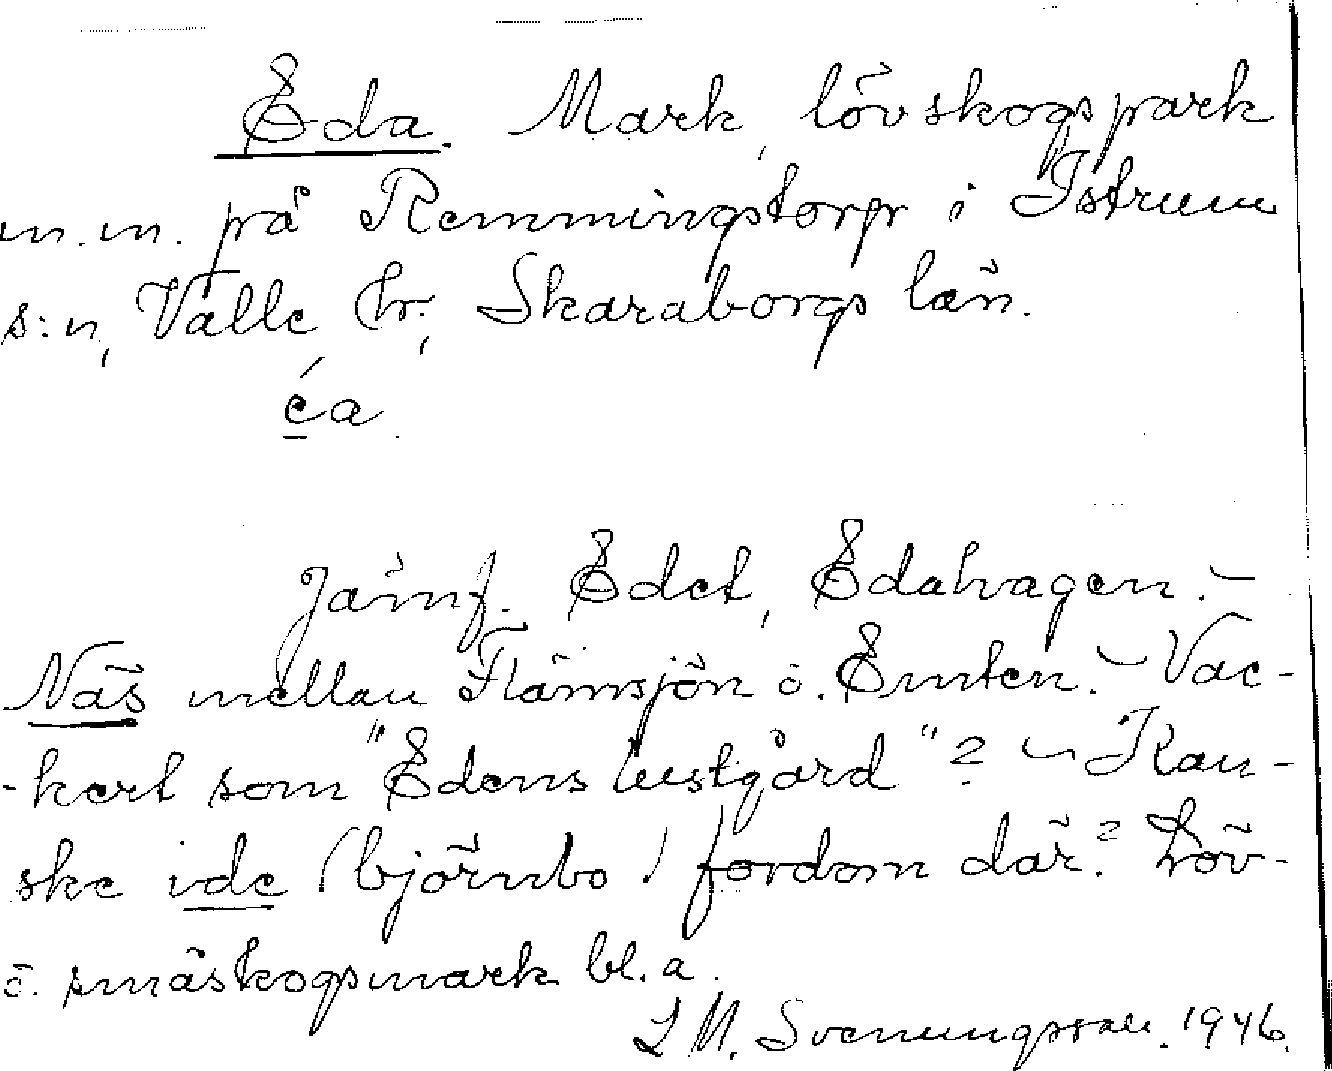 Eda. Mark, lövskogspark
m.m. på Remmingstorp i Istrum
s:n, Valle hr., Skaraborgs län.
éa.
Jämf. Edet, Edahagen. –
Näs mellan Flämsjön o. Emten. – Vac-
-kert som "Edens lustgård"? – Kan-
ske ide (björnbo) fordom där? Löv-
o. småskogsmark bl.a.
L M. Svenungsson. 1946.